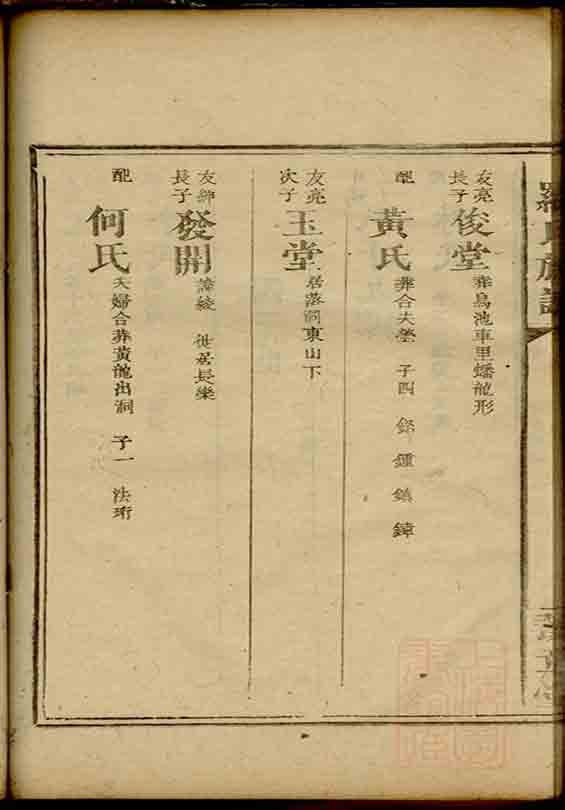 羅氏族譜
友亮長子 俊堂 葬烏池車里蟠龍形
配 黃氏 葬合夫塋 子四 鍾 鎮
友亮次子 玉堂 居落洞東山下
長子 發開 徙居長樂
配 何氏 夫婦合葬黃龍出洞 子一 法珩